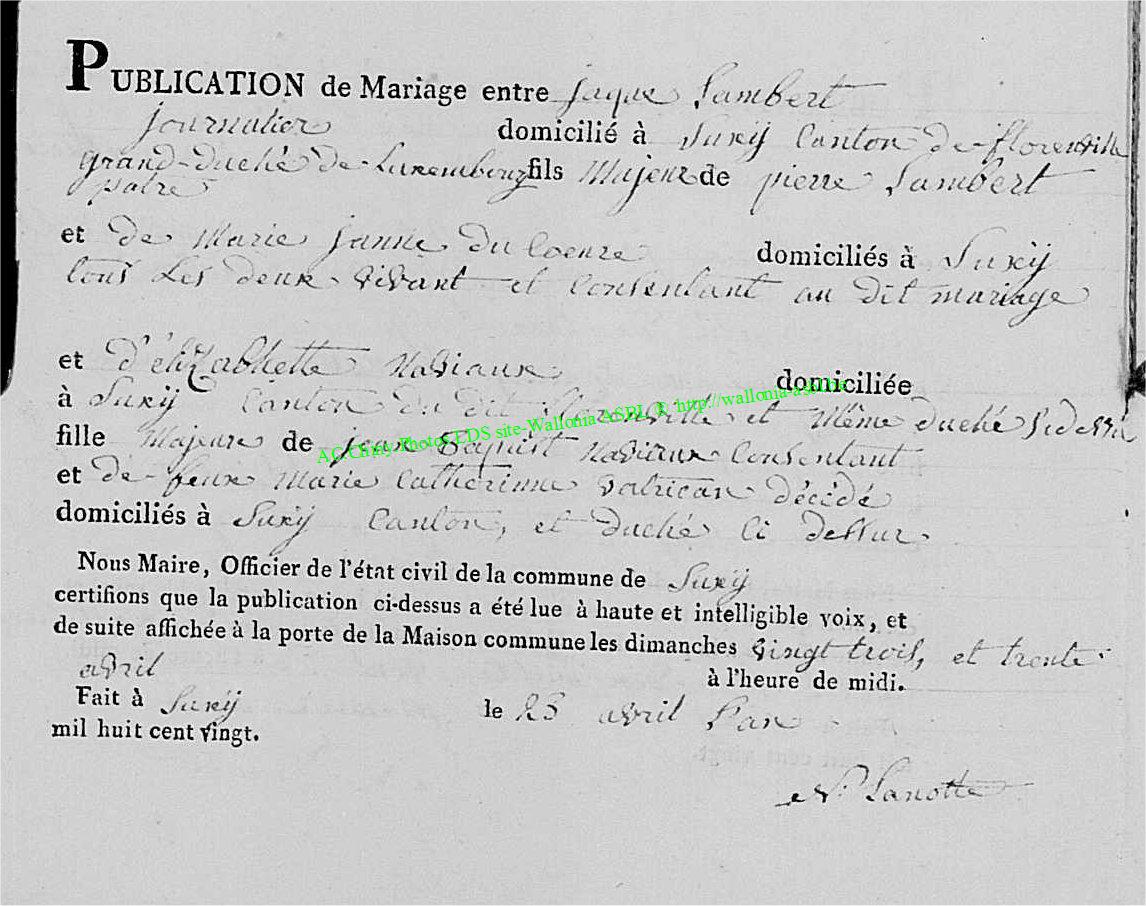 PUBLICATION de Mariage entre jaque Lambert
journalier domicilié à Suxÿ Canton de florenville
grand-duché de Luxembourg fils Majeur de pierre Lambert
patre
et de Marie janne du Coeure domiciliés à Suxÿ
tous les deux vivant et consentant au dit mariage
et d'élizabhette Naviaux domiciliée
à Suxÿ Canton du dit florenville et même duché
fille Majeure de jean Baptist Naviaux Consentant
et de feux Marie Catherinne décédé
domiciliés à Suxÿ Canton, et duché ci dessur.
Nous Maire, Officier de l'état civil de la commune de Suxÿ
certifions que la publication ci-dessus a été lue à haute et intelligible voix, et
de suite affichée à la porte de la Maison commune les dimanches vingt trois, et trente
avril à l'heure de midi.
Fait à Suxÿ le 23 avril l'an
mil huit cent vingt.
Lanotte
AC Chiny Photos EDS site-Wallonia ASBL © http://wallonia-asbl.be